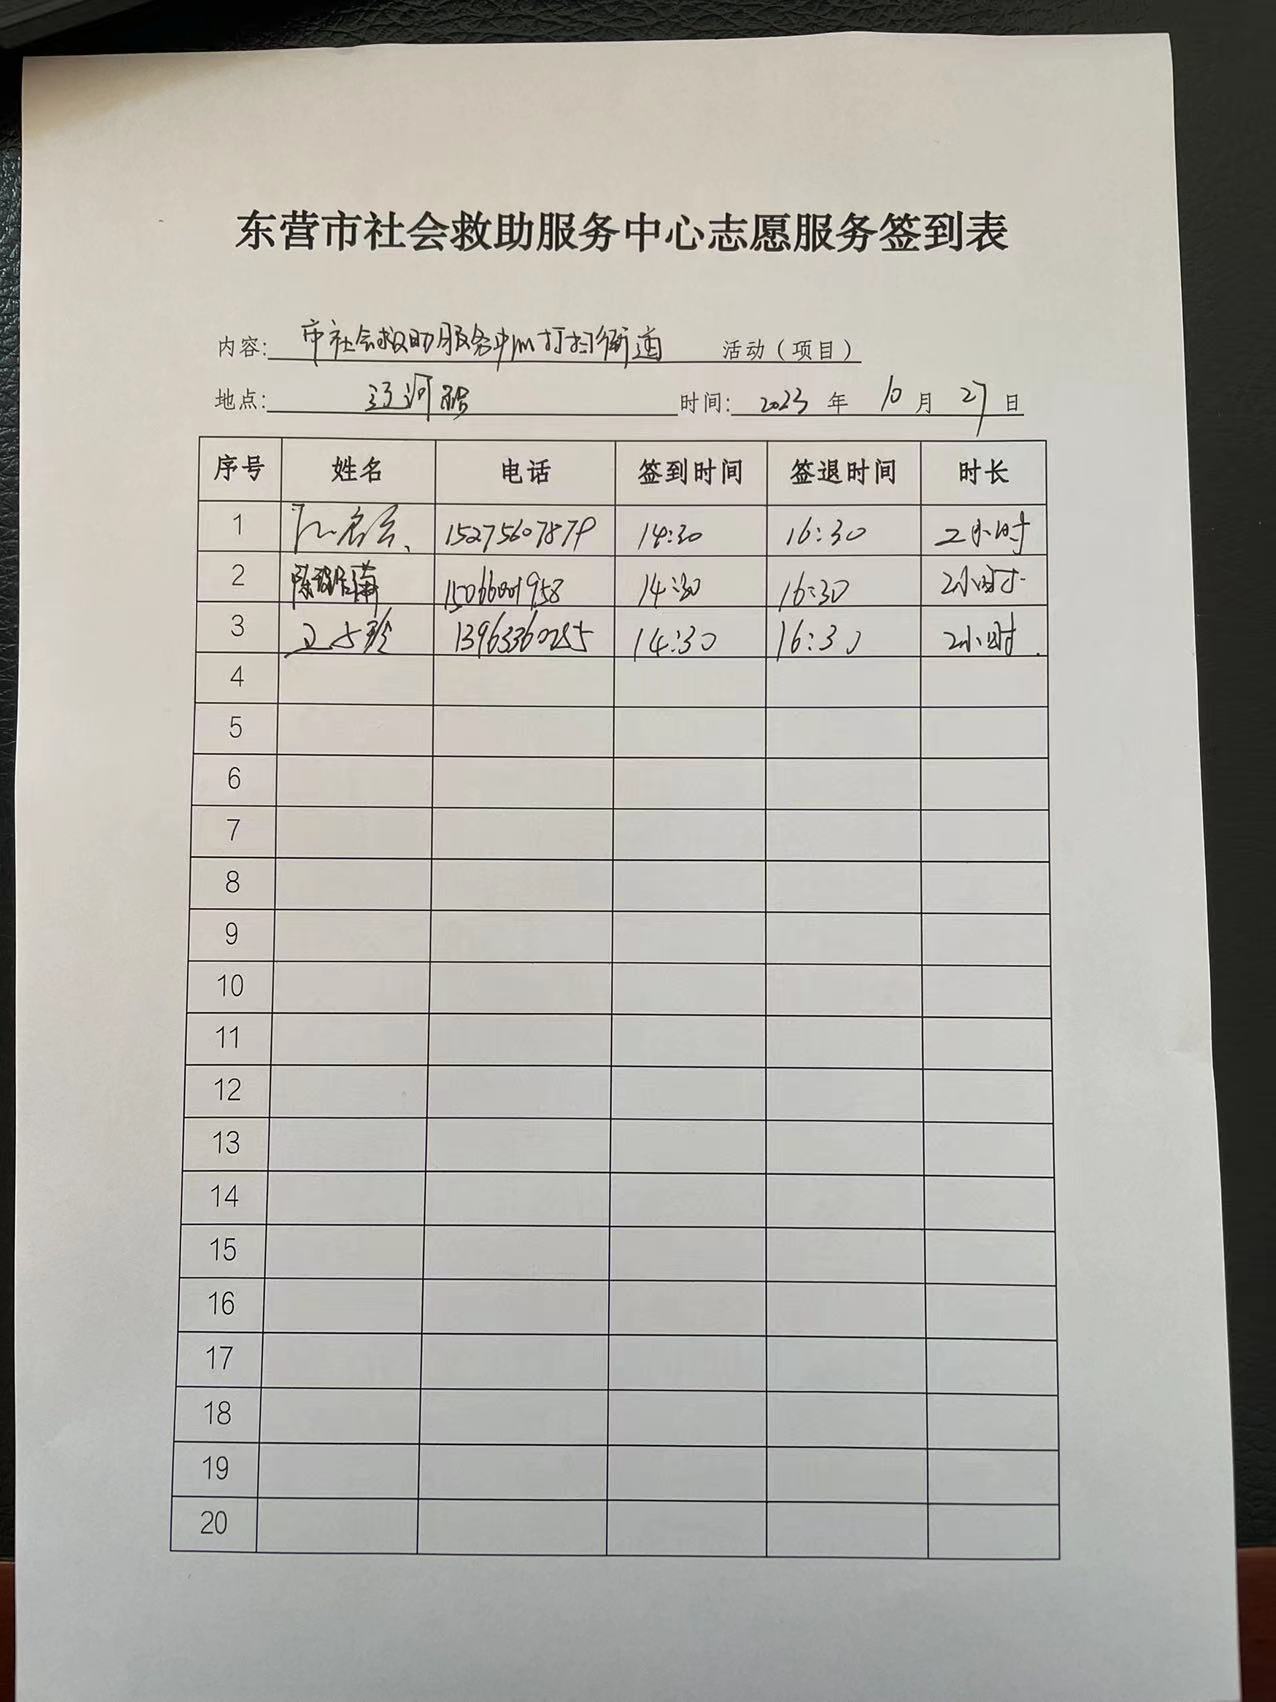 东营市社会救助服务中心志愿服务签到表
内容: 市社会救助服务中心打扫街道 活动（项目）
地点: 辽河路 时间: 2023 年 10 月 27 日
序号 姓名 电话 签到时间 签退时间 时长
1 15275607879 14:30 16:30 2小时
2 15066001958 14:30 16:30 2小时
3 14:30 16:30 2小时
4
5
6
7
8
9
10
11
12
13
14
15
16
17
18
19
20